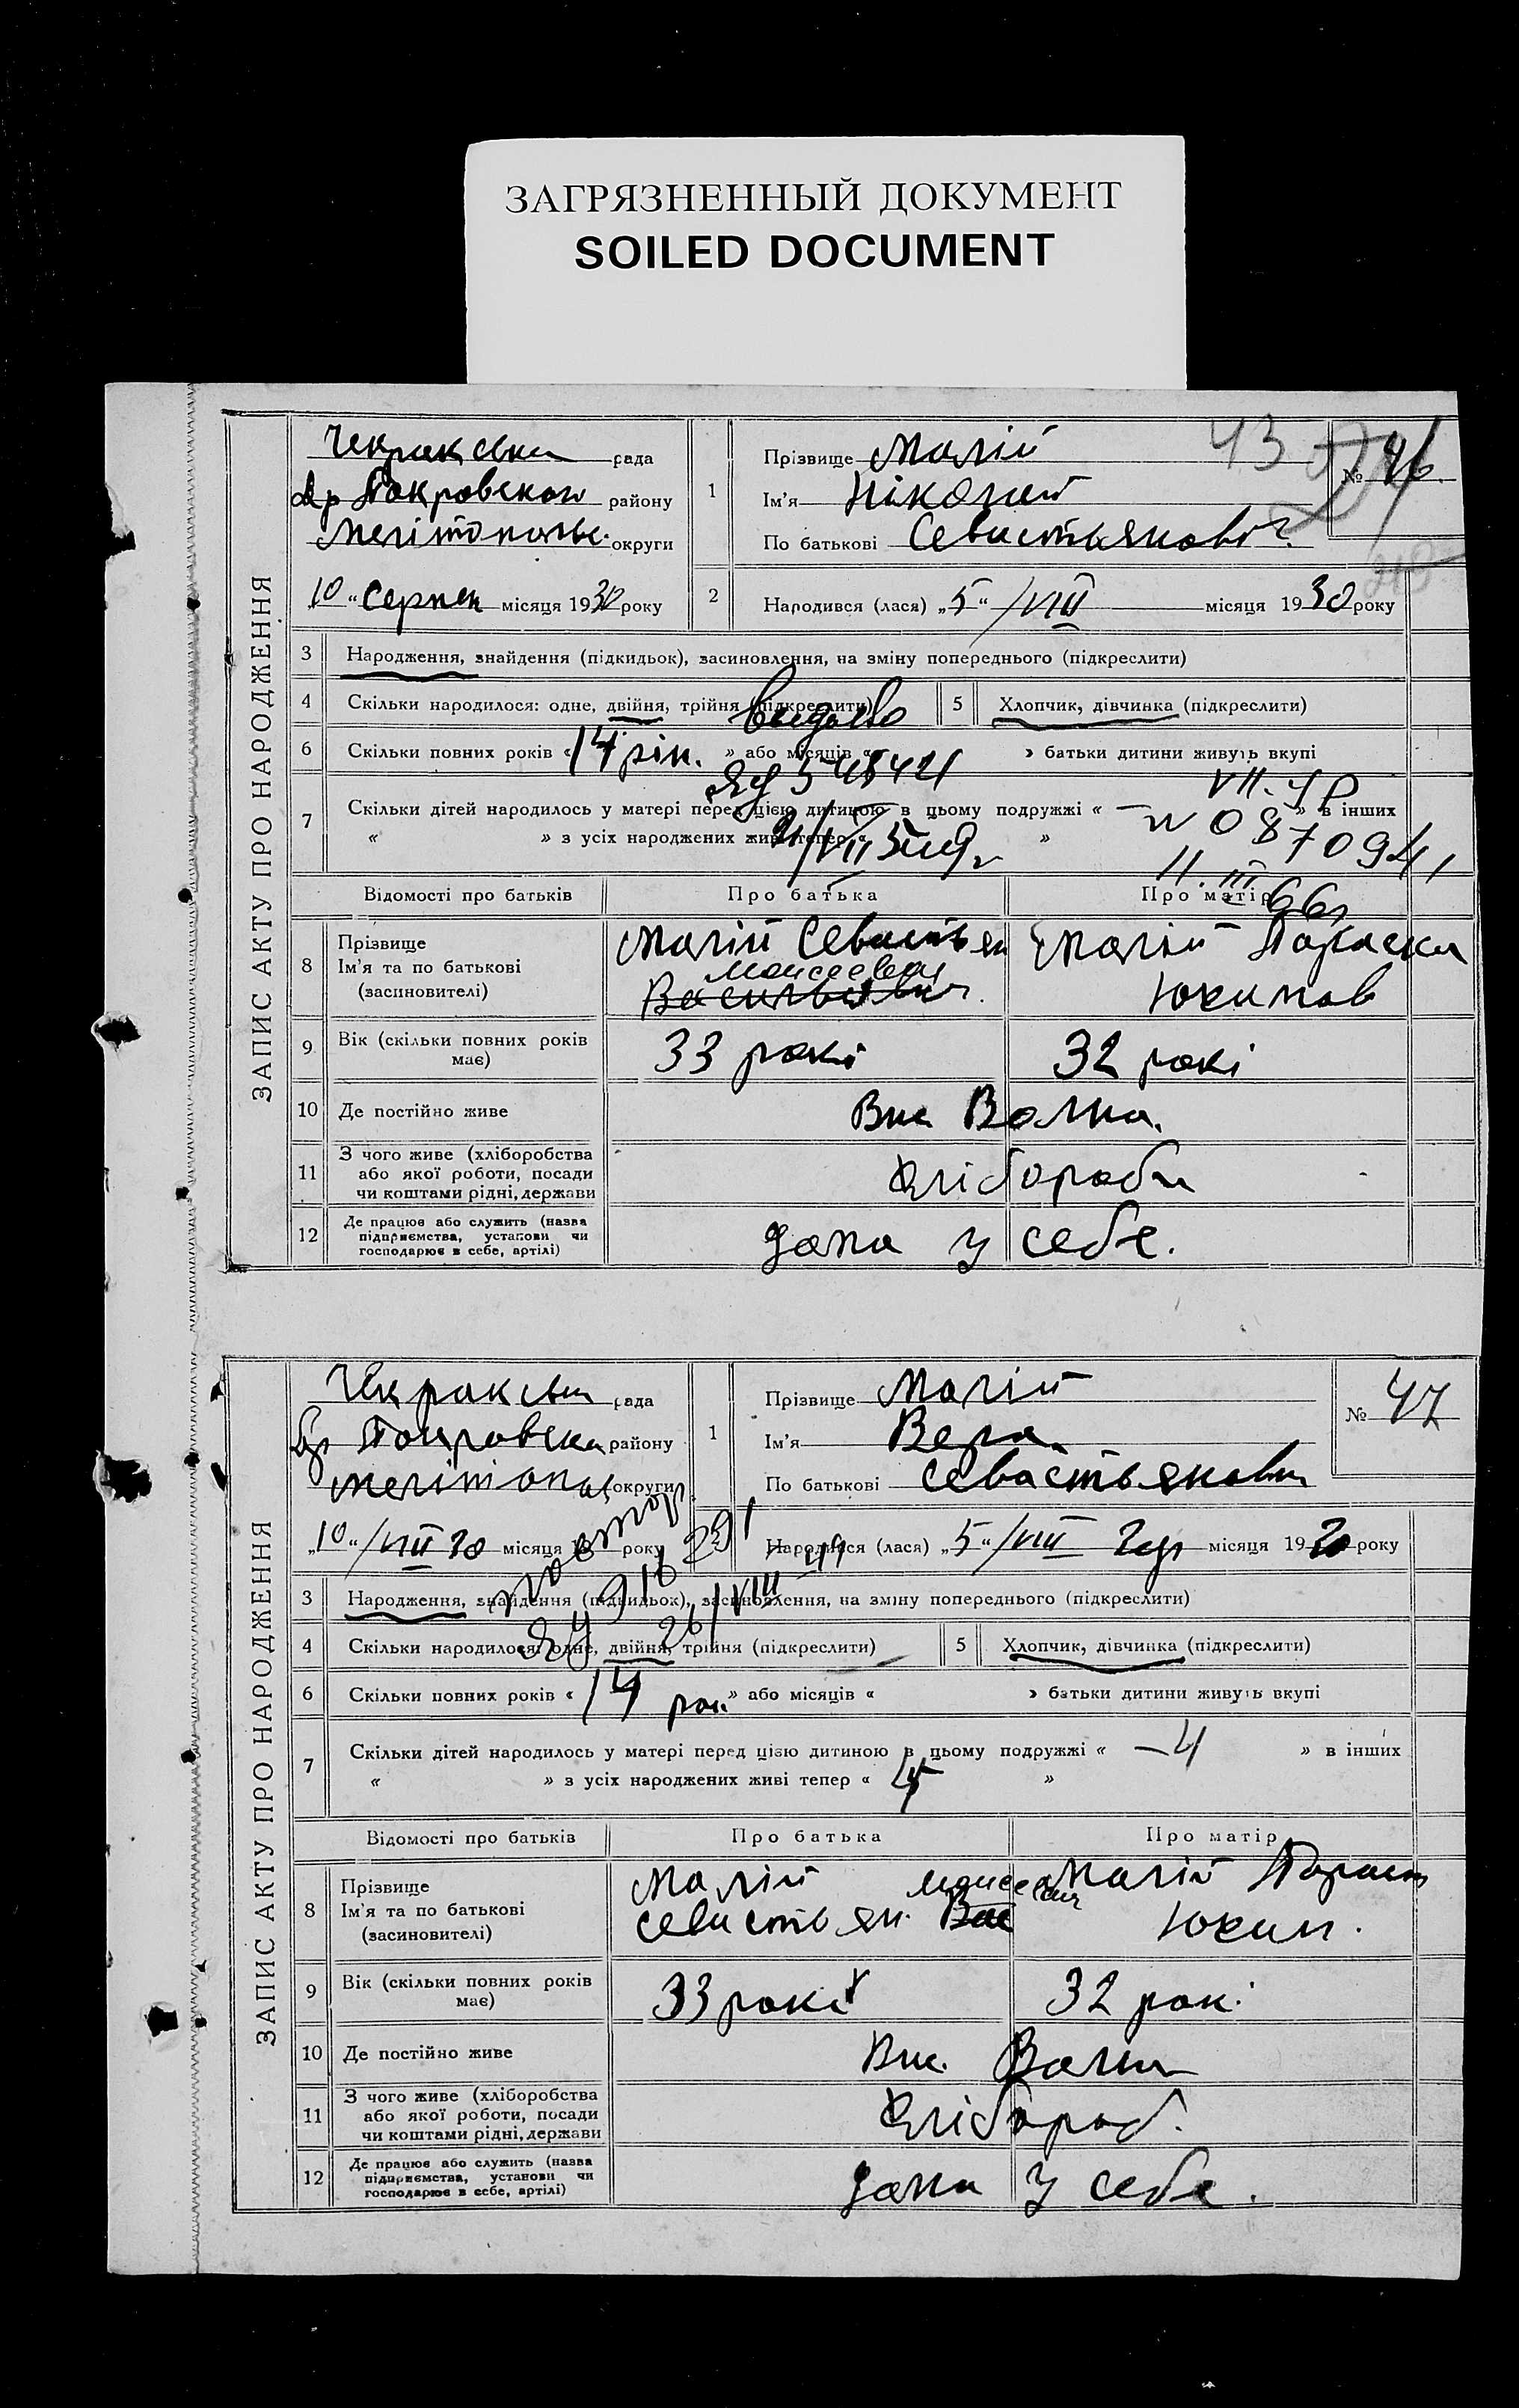 ЗАГРЯЗНЕННЫЙ ДОКУМЕНТ
SOILED DOCUMENT
ЗАПИС АКТУ ПРО НАРОДЖЕННЯ
рада
району
округи
10 " Серпен місяця 1930 року
1
Прізвище Малій
Ім'я Ніколай
По батькові Севастьянович
43
№ 46
2
Народився (лася) „5“ /VIII місяця 1930 року
3 Народження, знайдення (підкидьок), засиновлення, на зміну попереднього (підкреслити)
4 Скільки народилося: одне, двійня, трійня (підкреслити)
5 Хлопчик, дівчинка (підкреслити)
6 Скільки повних років « 14 рік. » або місяців « » батьки дитини живуть вкупі
7 Скільки дітей народилось у матері перед цією дитиною в цьому подружжі « » в інших
« » з усіх народжених живі тепер « »
Відомості про батьків Про батька Про матір
8 Прізвище
Ім'я та по батькові
(засиновителі)
Малій Севастьян
Моисеевич
Васильович
Малій Параска
Юхимов
9 Вік (скільки повних років має) 33 рокі 32 рокі
10 Де постійно живе Вис Волна.
11 З чого живе (хліборобства
або якої роботи, посади
чи коштами рідні, держави
Хлібороби
12 Де працює або служить (назва
підприємства, установи чи
господарює в себе, артілі)
дома у себе.
ЗАПИС АКТУ ПРО НАРОДЖЕННЯ
рада
району
округи
„10“ /VIII 30 місяця 19 року
1
Прізвище Малій
Ім'я Вера
По батькові Севастьяновна
№ 47
Народився (лася) „5“ /VIII місяця 1930 року
3 Народження, знайдення (підкидьок), засиновлення, на зміну попереднього (підкреслити)
4 Скільки народилося: одне, двійня, трійня (підкреслити)
5 Хлопчик, дівчинка (підкреслити)
6 Скільки повних років « 14 рок » або місяців « » батьки дитини живуть вкупі
7 Скільки дітей народилось у матері перед цією дитиною в цьому подружжі « – 4 » в інших
« » з усіх народжених живі тепер « »
Відомості про батьків Про батька Про матір
8 Прізвище
Ім'я та по батькові
(засиновителі)
Малій Моисеевич
Севастьян. Вас
Малій Параск
Юхим.
9 Вік (скільки повних років має) 33 рокі 32 рок.
10 Де постійно живе Вис. Волна
11 З чого живе (хліборобства
або якої роботи, посади
чи коштами рідні, держави
Хлібороб.
12 Де працює або служить (назва
підприємства, установи чи
господарює в себе, артілі)
дома у себе.